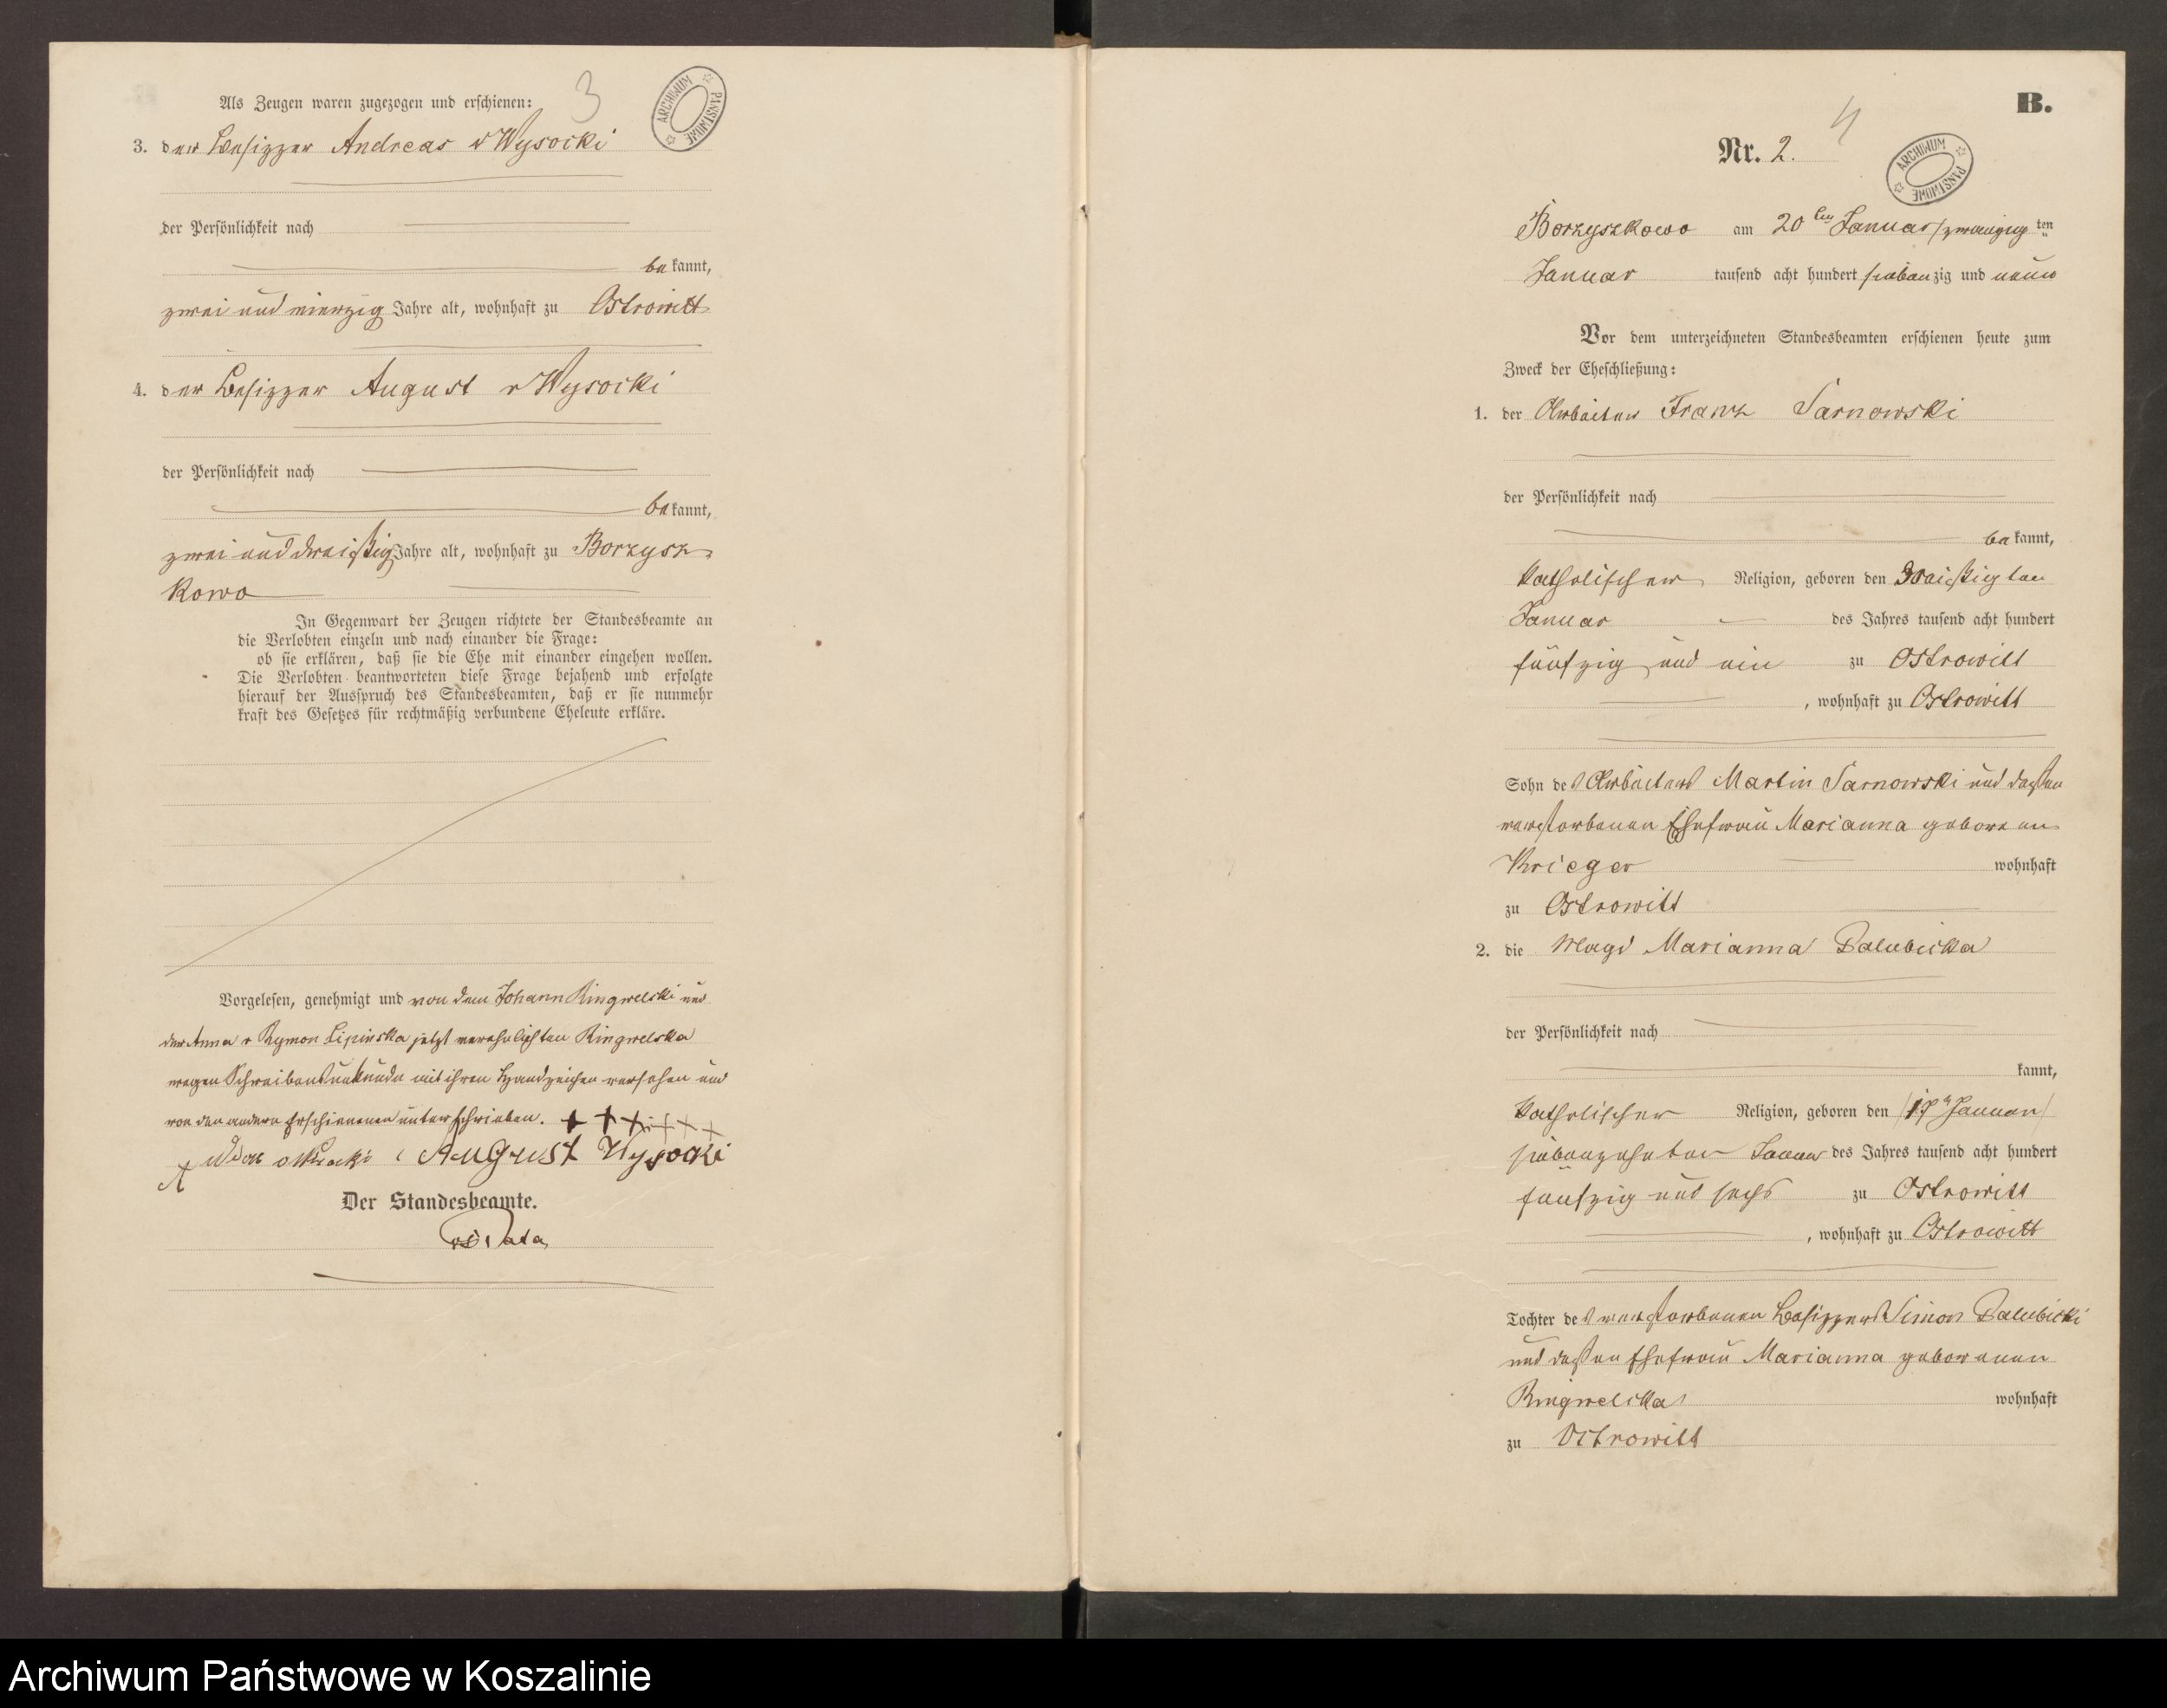 Als Zeugen waren zugezogen und erschienen:
3
ARCHIWUM PAŃSTWOWE
3. der Besitzer Andreas v Wysocki
der Persönlichkeit nach
bekannt,
zwei und vierzig Jahre alt, wohnhaft zu Ostrowitt
4. der Besitzer August v Wysocki
der Persönlichkeit nach
bekannt,
zwei und dreißig Jahre alt, wohnhaft zu Borzysz-
kowo
In Gegenwart der Zeugen richtete der Standesbeamte an
die Verlobten einzeln und nach einander die Frage:
ob sie erklären, daß sie die Ehe mit einander eingehen wollen.
Die Verlobten beantworteten diese Frage bejahend und erfolgte
hierauf der Ausspruch des Standesbeamten, daß er sie nunmehr
kraft des Gesetzes für rechtmäßig verbundene Eheleute erkläre.
Vorgelesen, genehmigt und von dem Johann Ringwelski und
der Anna v Rymon Lipinska jetzt verehelichten Ringwelska
wegen Schreibensunkunde mit ihren Handzeichen versehen und
von den andern Erschienenen unterschrieben. + + + + + +
August Wysocki
Der Standesbeamte.
B.
4
Nr. 2.
ARCHIWUM PAŃSTWOWE
Borzyszkowo am 20ten Januar /zwanzigsten
Januar tausend acht hundert siebenzig und neun
Vor dem unterzeichneten Standesbeamten erschienen heute zum
Zweck der Eheschließung:
1. der Arbeiter Franz Sarnowski
der Persönlichkeit nach
bekannt,
katholischer Religion, geboren den dreißigten
Januar des Jahres tausend acht hundert
fünfzig und ein zu Ostrowitt
, wohnhaft zu Ostrowitt
Sohn des Arbeiters Martin Sarnowski und dessen
verstorbenen Ehefrau Marianna geborenen
Krieger wohnhaft
zu Ostrowitt
2. die Magd Marianna Dalubicka
der Persönlichkeit nach
kannt,
katholischer Religion, geboren den /17t Januar/
siebenzehnten Januar des Jahres tausend acht hundert
fünfzig und sechs zu Ostrowitt
, wohnhaft zu Ostrowitt
Tochter des verstorbenen Besitzers Simon Dalubicki
und dessen Ehefrau Marianna geborenen
Ringwelska wohnhaft
zu Ostrowitt
Archiwum Państwowe w Koszalinie